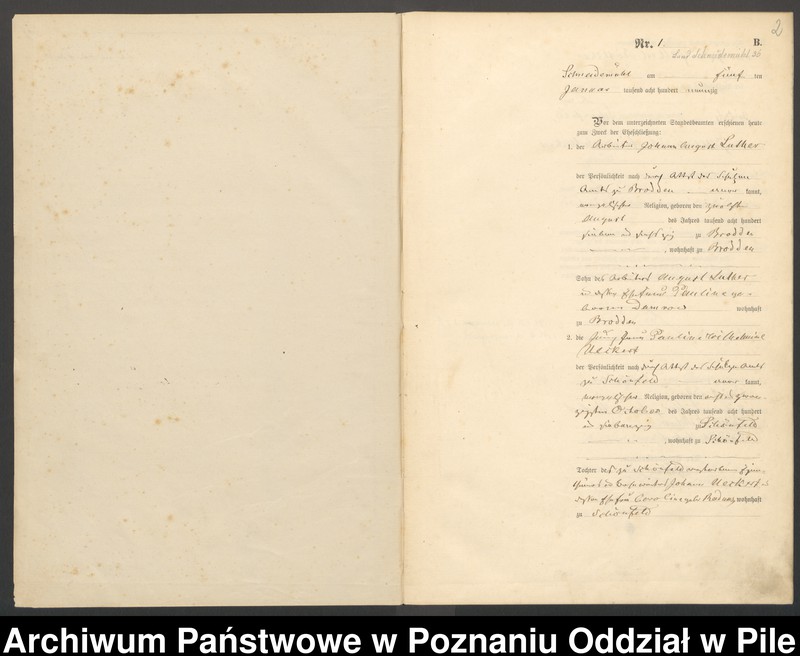 2
Nr. 1 B.
Schneidemühl am fünf ten
Januar tausend acht hundert neunzig
Vor dem unterzeichneten Standesbeamten erschienen heute
zum Zweck der Eheschließung:
1. der Arbeiter Johann August Luther
der Persönlichkeit nach durch Attest des Schulzen
Amts zu Brodden kannt,
evangelischer Religion, geboren den zwölften
August des Jahres tausend acht hundert
sieben und sechszig zu Brodden
, wohnhaft zu Brodden
Sohn des Arbeiters August Luther
und dessen Ehefrau Pauline ge-
borene Damrow wohnhaft
zu Brodden
2. die Jungfrau Pauline Wilhelmine
Ueckert
der Persönlichkeit nach durch Attest des Schulzen Amts
zu Schönfeld kannt,
evangelischer Religion, geboren den
October des Jahres tausend acht hundert
und siebenzig zu Schönfeld
, wohnhaft zu Schönfeld
Tochter des zu Schönfeld verstorbenen Eigen-
thümers Johann Ueckert und
dessen Ehefrau wohnhaft
zu Schönfeld
Archiwum Państwowe w Poznaniu Oddział w Pile